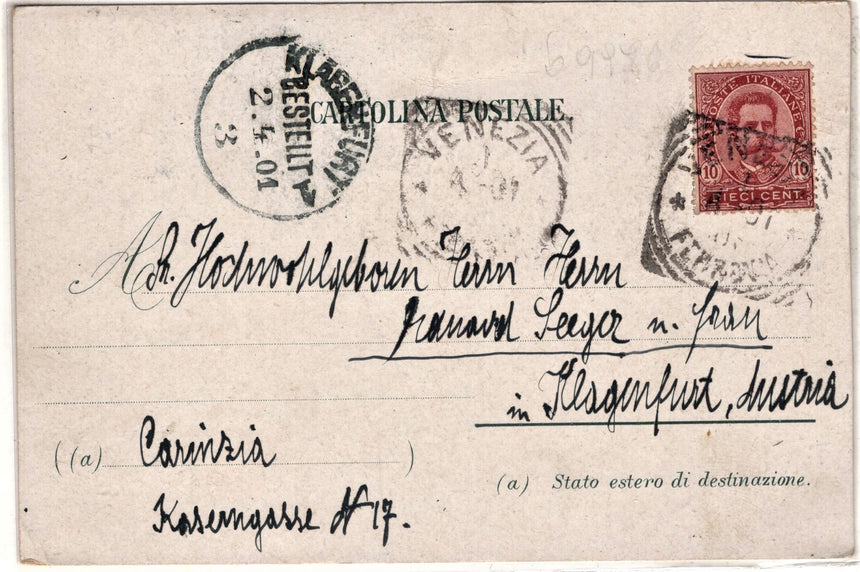 69970
CARTOLINA POSTALE.
KLAGENFURT
BESTELLT 1
2.4.01
3
VENEZIA
4-01
POSTE ITALIANE
10 10
DIECI CENT
FERROVIA
Sr. Hochwohlgeboren Herrn Herrn
Seeger u. Frau
in Klagenfurt, Austria
(a) Carinzia )
(a) Stato estero di destinazione.
Kaserngasse N 17.